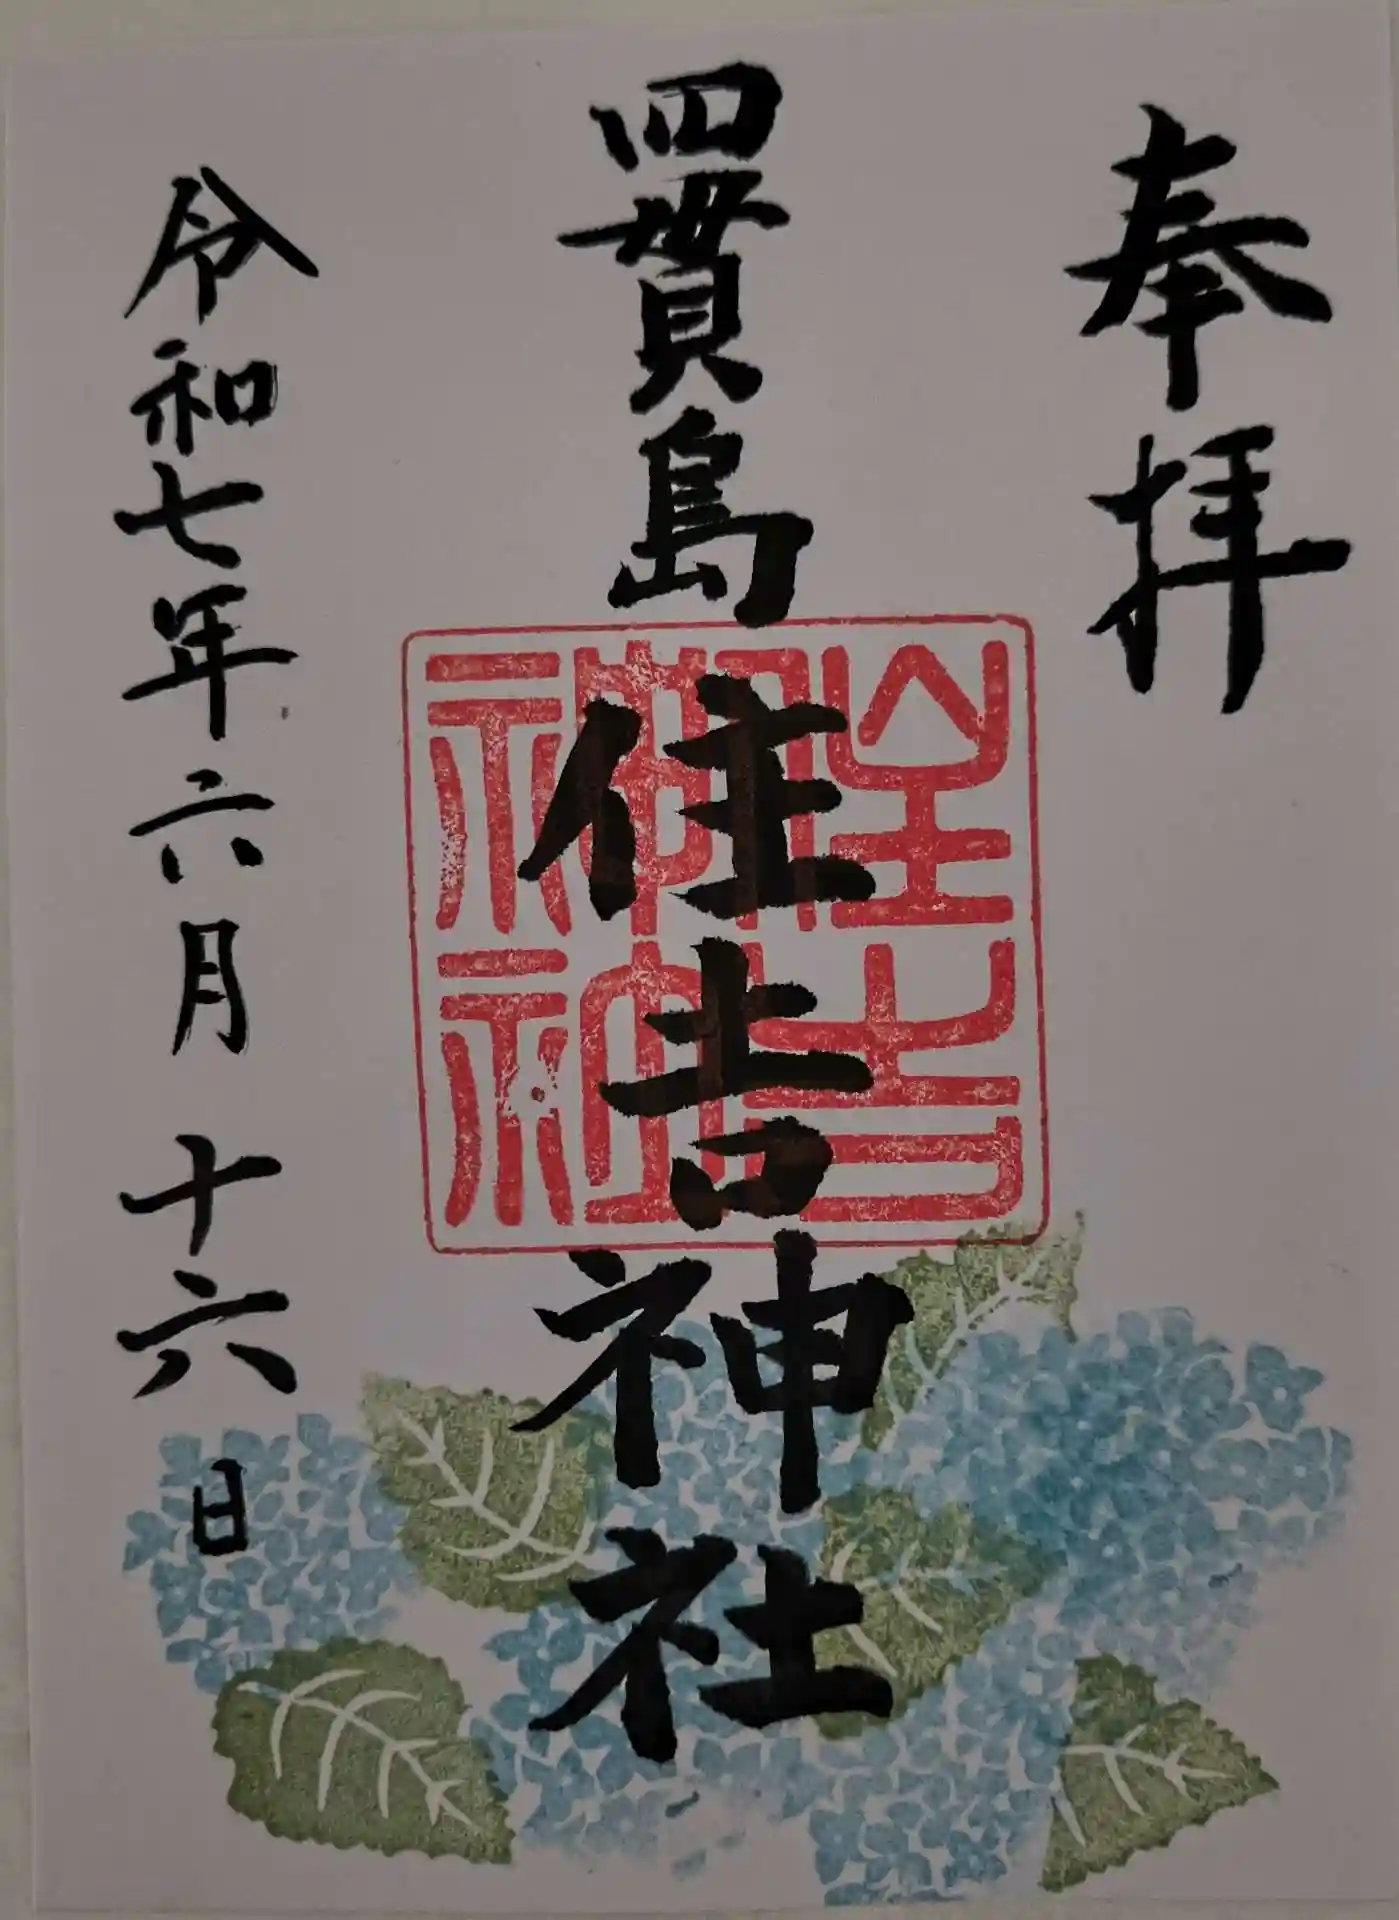 奉拝
四貫島住吉神社
住吉神社
令和七年六月十六日